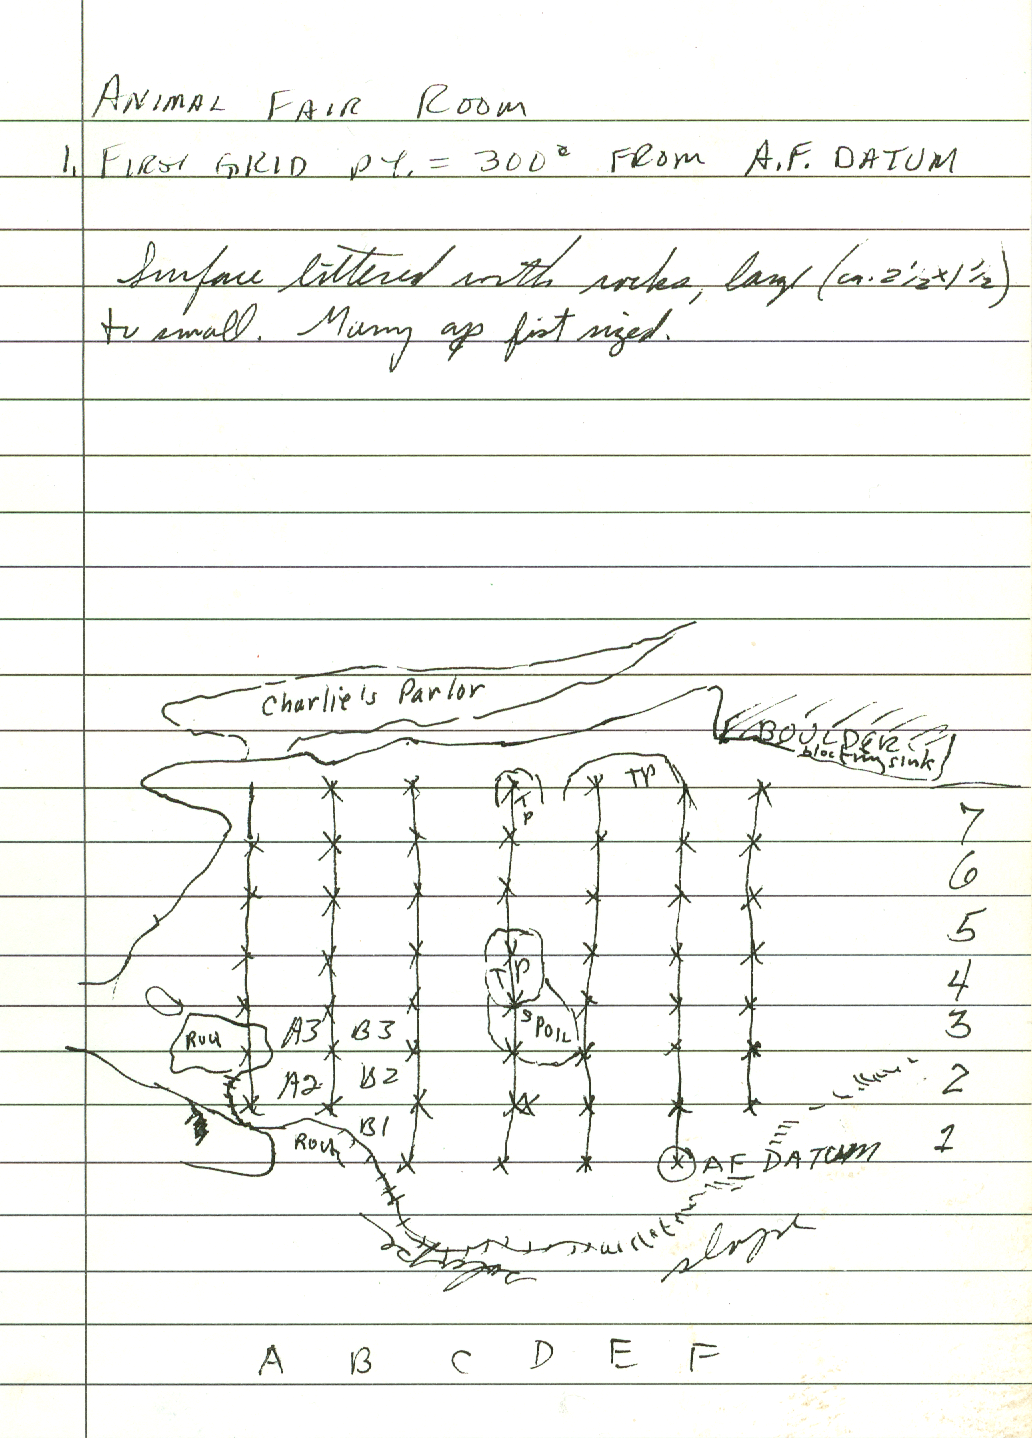 ANIMAL FAIR ROOM
1. FIRST GRID pt. = 300° FROM A.F. DATUM
Surface littered with rocks, large (ca. 2½ x 1½)
to small. Many are fist sized.
Charlie's Parlor
BOULDER
blocking sink
TP
TP
7
6
5
TP
4
SPOIL
3
Rock
A3 B3
A2 B2
2
B1
Rock
1
AF DATUM
slope
A B C D E F